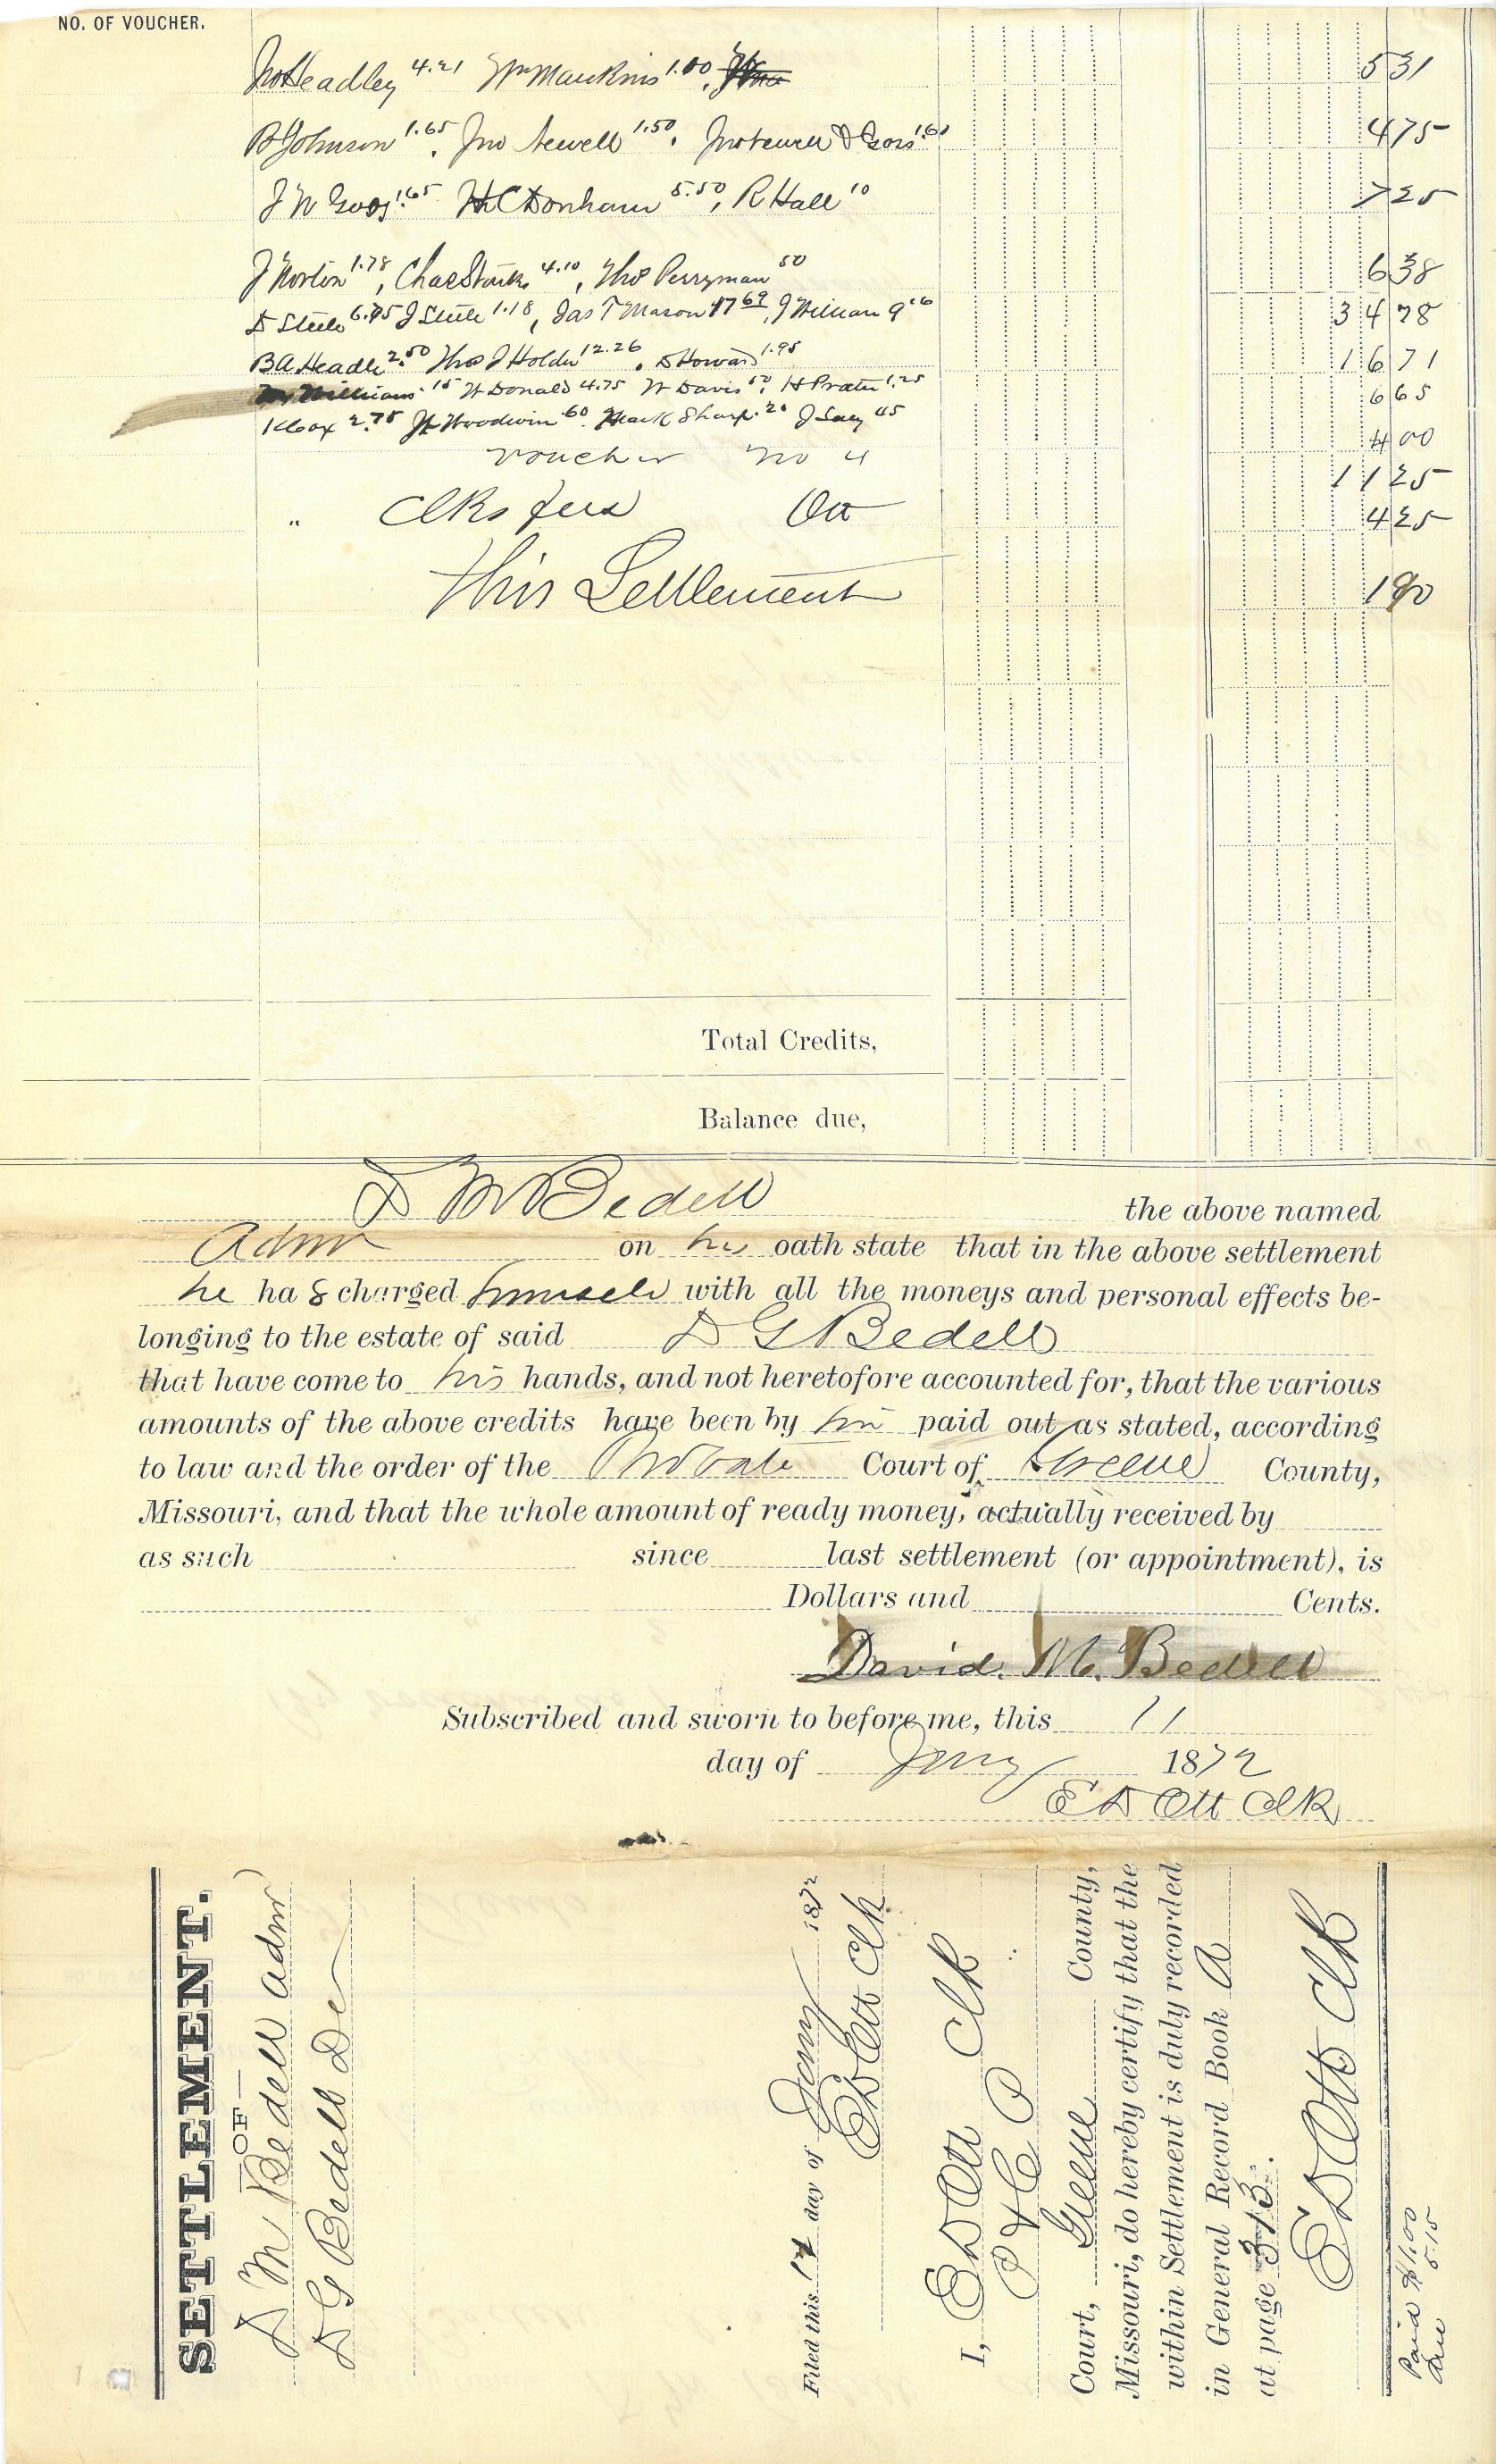 NO. OF VOUCHER.
Jno Headley 4.21 Wm Mankins 1.10, 5 31
B Johnson 1.65, Jno Newell 1.50, Jno Newell & Sons 1.60 4 75
J W Goss 1.65 H C Donham 5.50, R Hall 10 7 25
J Norton 1.78, Chas Stark 4.10, Thos Perryman 50 6 38
D Steele 6.75 J Steele 1.18, Jas T Mason 17 69, J William 9 16 34 78
B A Headle 2.50 Thos J Holder 12.26, D Howard 1.95 16 71
Williams 15 W Donald 4.75 W Davis 50, H Prater 1.25 6 65
K Cox 2.75 Woodwin .60. Mack Sharp .20 J Lay 45 4 00
Voucher No 4 11 25
" Clks fees Ott 4 25
This Settlement 1 90
Total Credits,
Balance due,
D M Bedell the above named
Admr on his oath state that in the above settlement
he has charged himself with all the moneys and personal effects be-
longing to the estate of said D G Bedell
that have come to his hands, and not heretofore accounted for, that the various
amounts of the above credits have been by him paid out as stated, according
to law and the order of the Probate Court of Greene County,
Missouri, and that the whole amount of ready money, actually received by
as such since last settlement (or appointment), is
Dollars and Cents.
David. M. Bedell
Subscribed and sworn to before me, this 11
day of Jany 1872
E D Ott Clk
SETTLEMENT.
—OF—
D M Bedell admr
D G Bedell De
Filed this 14 day of Jany 1872
E D Ott Clk
I, E D Ott Clk
P & C P
Court, Greene County,
Missouri, do hereby certify that the
within Settlement is duly recorded
in General Record Book A
at page 313.
E D Ott Clk
Paid $1.00
Due 5.15